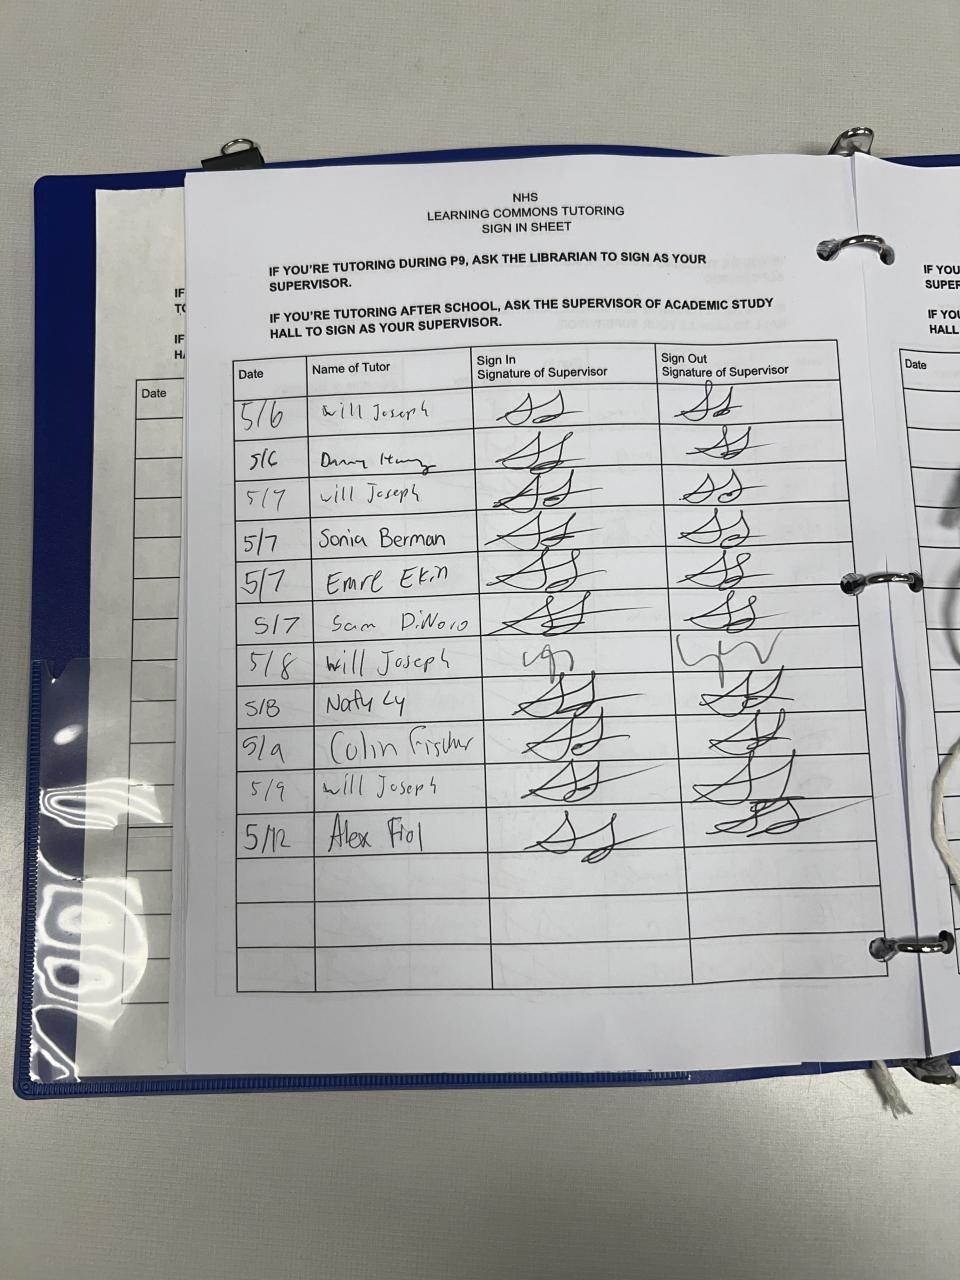 NHS
LEARNING COMMONS TUTORING
SIGN IN SHEET
IF YOU'RE TUTORING DURING P9, ASK THE LIBRARIAN TO SIGN AS YOUR
SUPERVISOR.
IF YOU'RE TUTORING AFTER SCHOOL, ASK THE SUPERVISOR OF ACADEMIC STUDY
HALL TO SIGN AS YOUR SUPERVISOR.
Date Name of Tutor Sign In Signature of Supervisor Sign Out Signature of Supervisor
5/6 Will Joseph
5/6 Danny
5/7 Will Joseph
5/7 Sonia Berman
5/7 Emre Ekin
5/7 Sam DiNoro
5/8 Will Joseph
5/8 Naty Ly
5/9 Colin Fischer
5/9 Will Joseph
5/12 Alex Fiol
IF
IF
Date
IF YOU
SUPER
IF YOU
HALL
Date